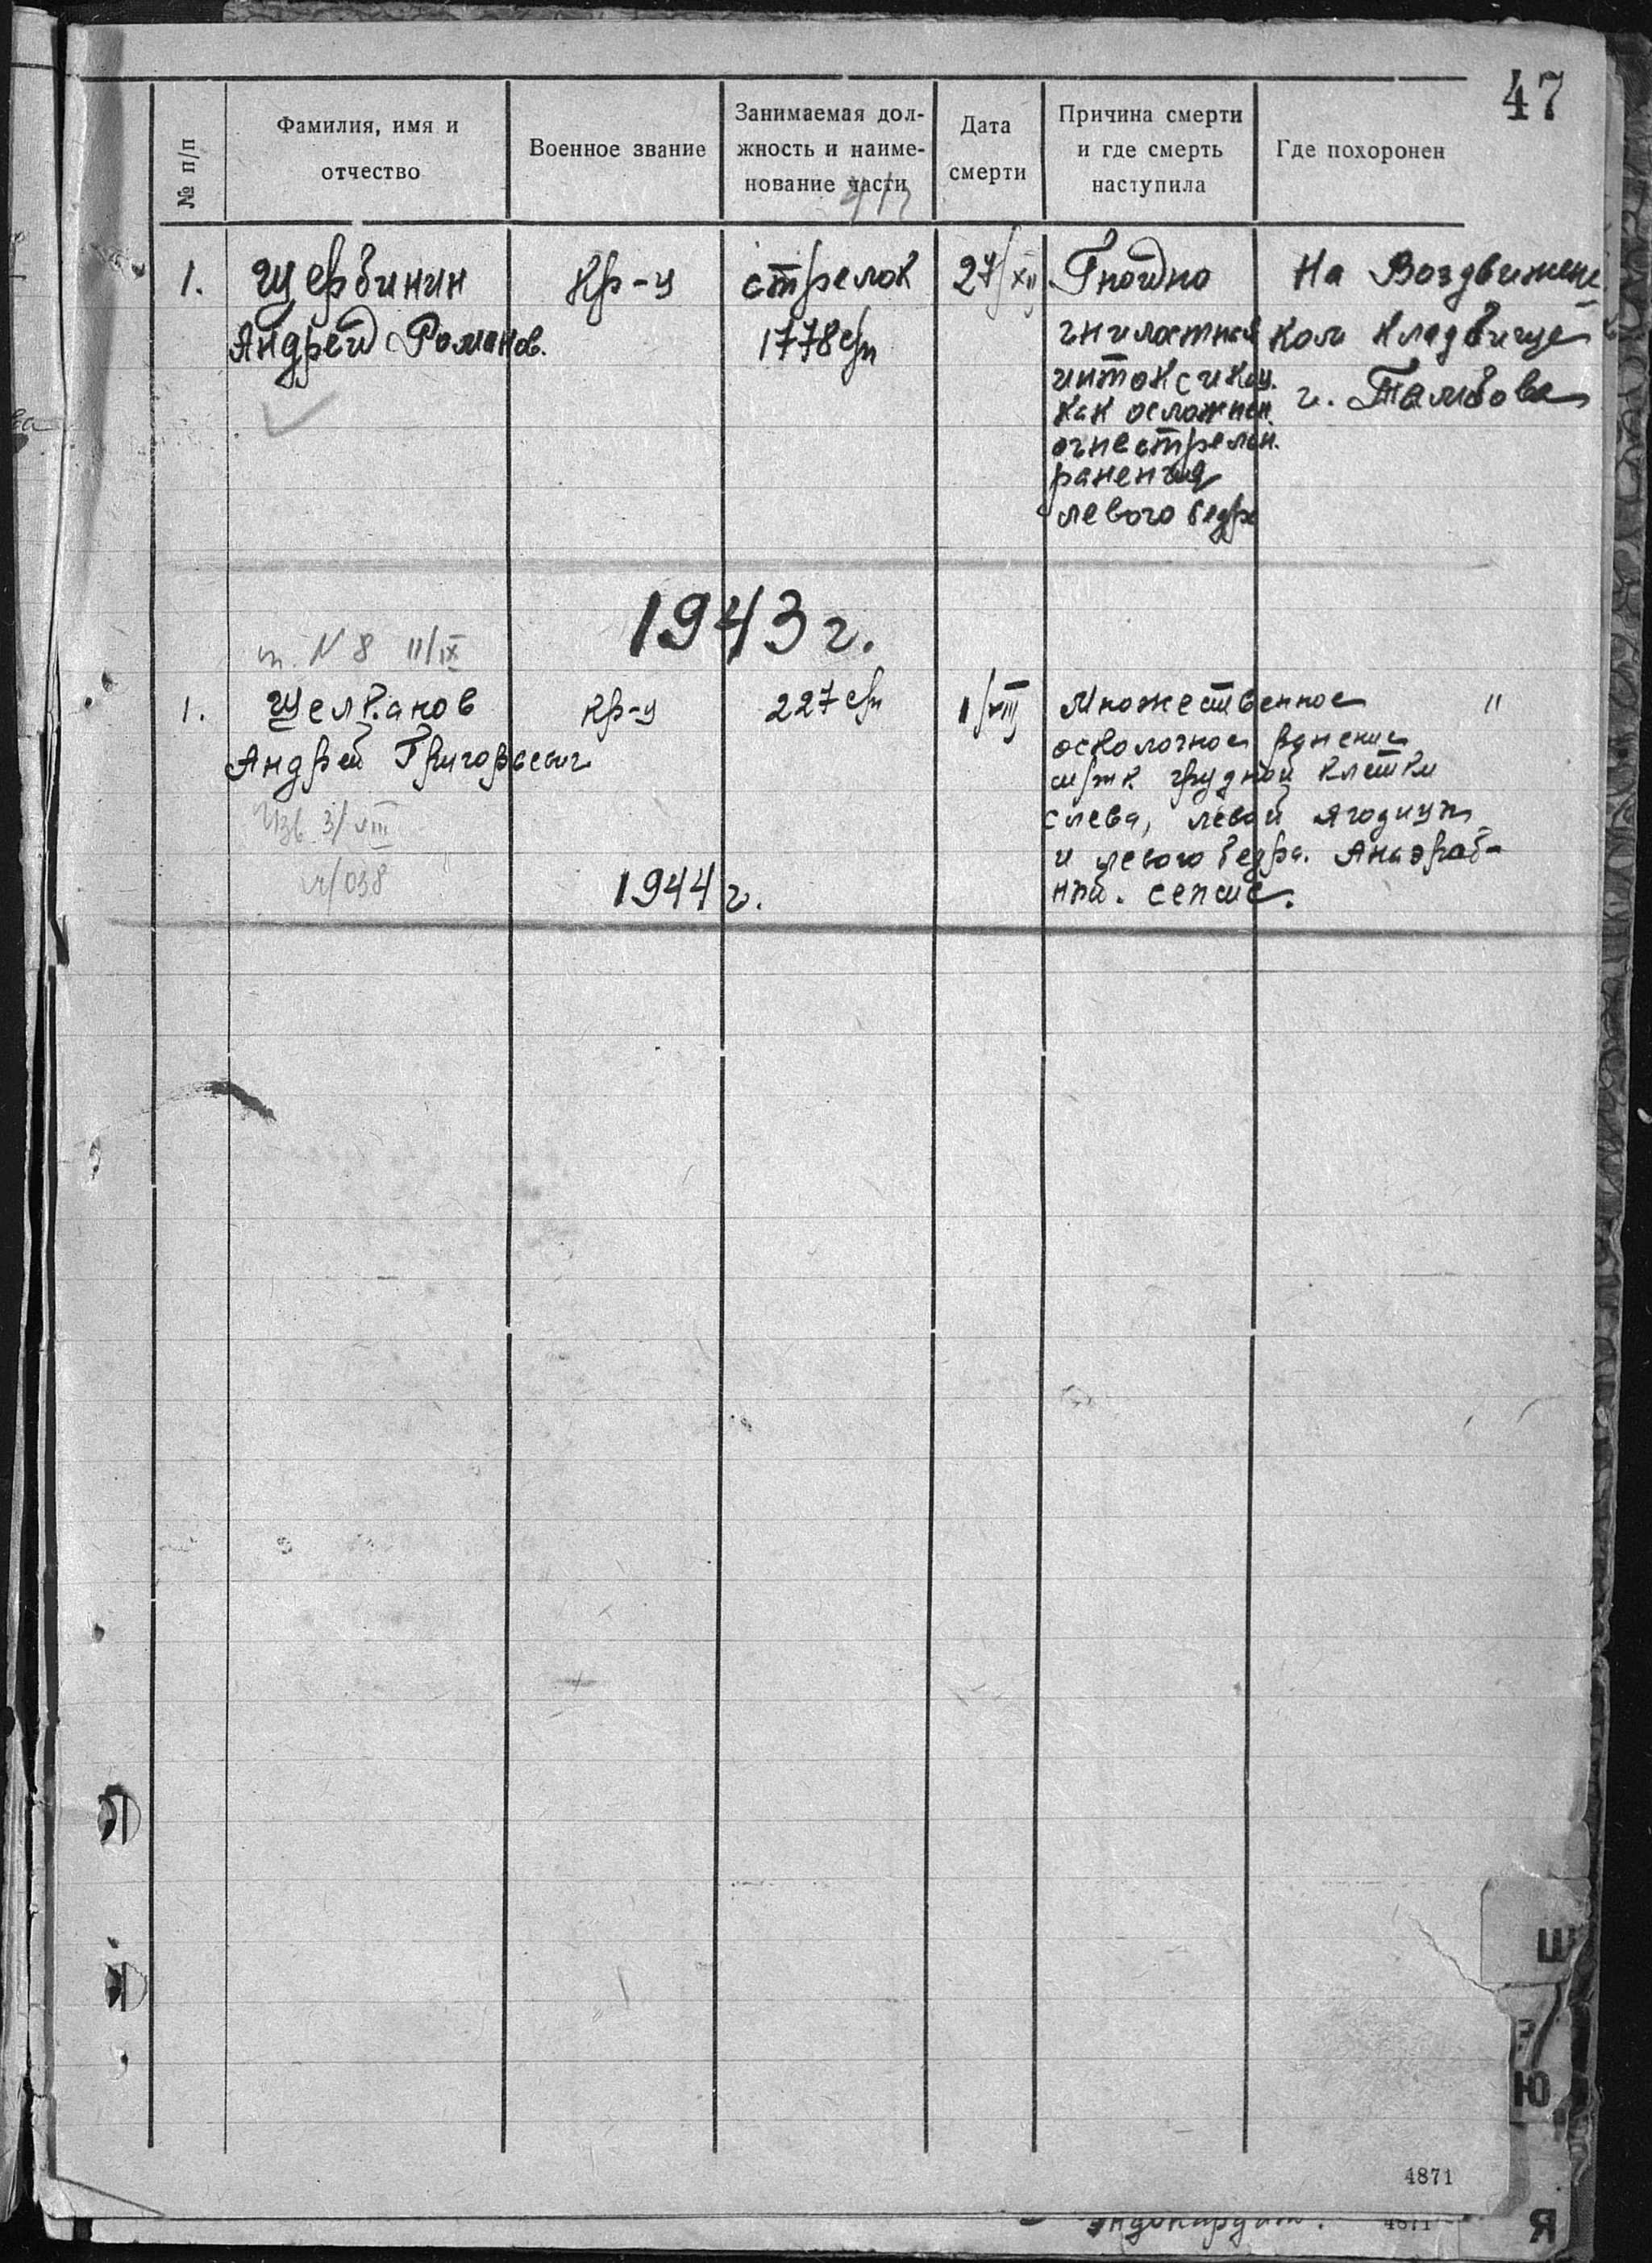 47
№ п/п
Фамилия, имя и
отчество
Военное звание
Занимаемая дол-
жность и наиме-
нование части
Дата
смерти
Причина смерти
и где смерть
наступила
Где похоронен
1.
Щербинин
Андрей Романов.
кр-ц
стрелок
1778 сп
27/XII
Гнойно
гнилостная
интоксикац.
как осложнен.
огнестрельн.
ранения
левого бедра
На Воздвиженс
ком кладбище
г. Тамбова
1943 г.
N 8 11/IX
1.
Щелканов
Андрей Григорьевич
кр-ц
227 сп
1/VIII
Множественное
осколочное ранение
м/тк. грудной клетки
слева, левой ягодицы
и левого бедра. Анаэроб-
ный. сепсис.
"
Изв. 3/VIII
ч/038
1944 г.
Ш
Ю
4871
эндокардит.
4871
Я